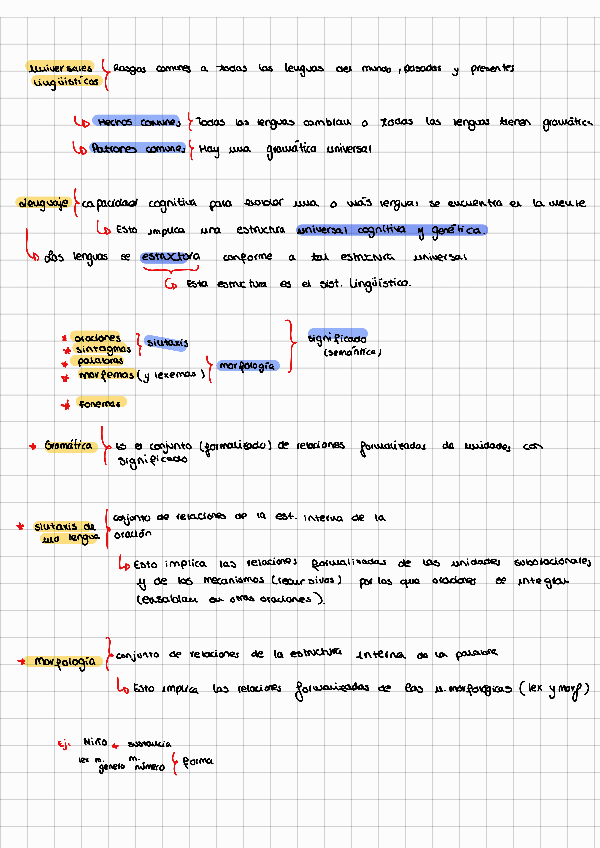 Universales Lingüísticos { Rasgos comunes a todas las lenguas del mundo, pasadas y presentes
↳ Hechos comunes { Todas las lenguas cambian o todas las lenguas tienen gramática
↳ Patrones comunes { Hay una gramática universal
Lenguaje { capacidad cognitiva para una o más lenguas se encuentra en la mente
↳ Esto implica una estructura universal cognitiva y genética.
↳ Las lenguas se estructura conforme a tal estructura universal
↳ Esta estructura es el sist. Lingüístico.
* oraciones
* sintagmas } sintaxis
* palabras
* morfemas (y lexemas) } morfología
} significado
(semántica)
* Fonemas
* Gramática } Es el conjunto (formalizado) de relaciones formalizadas de unidades con
significado
* Sintaxis de una lengua { conjunto de relaciones de la est. interna de la
oración
↳ Esto implica las relaciones formalizadas de las unidades suboracionales
y de los mecanismos (recursivos) por los que oraciones se integran
(ensamblan en otras oraciones).
* Morfología } conjunto de relaciones de la estructura interna de la palabra
↳ Esto implica las relaciones formalizadas de las u. morfológicas (lex y morf)
Ej: Niño sustancia
lex m. género m. número { forma